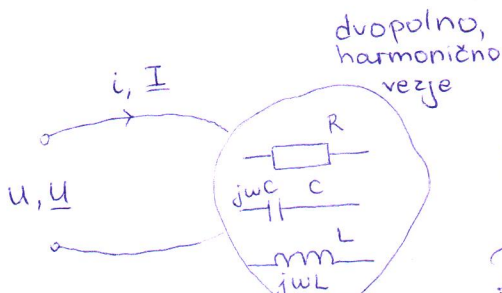 dvopolno,
harmonično
vezje
i, I
R
u, U
jωC C
L
jωL